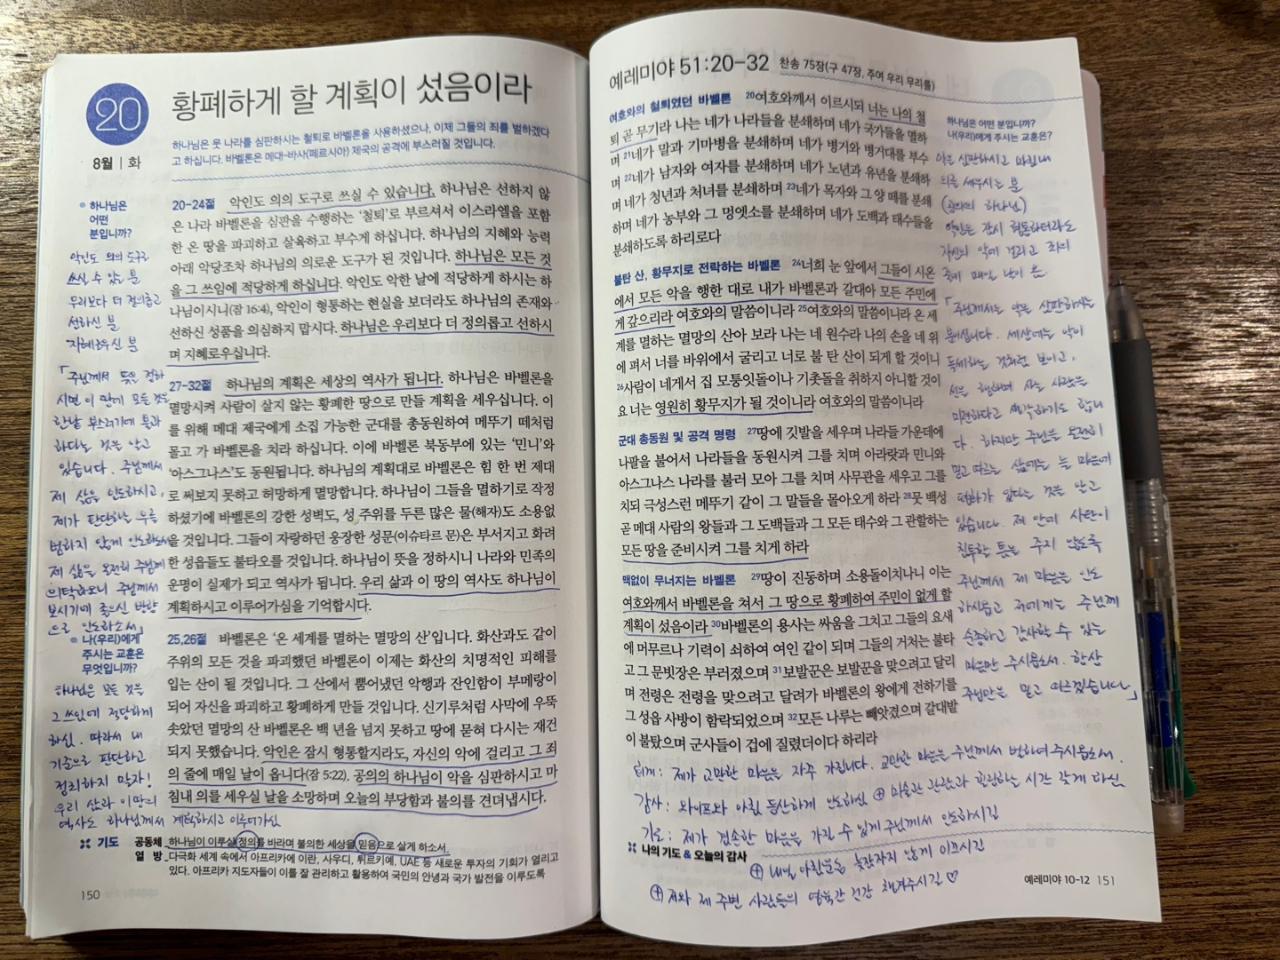 20
8월 | 화
황폐하게 할 계획이 섰음이라
하나님은 뭇 나라를 심판하시는 철퇴로 바벨론을 사용하셨으나, 이제 그들의 죄를 벌하겠다
고 하십니다. 바벨론은 메대-바사(페르시아) 제국의 공격에 부스러질 것입니다.
하나님은
어떤
분입니까?
악인도 의의 도구로
쓰실 수 있는 분
우리보다 더 정의롭고
선하신 분
지혜로우신 분
「주님께서 뜻을 정하
시면 이 땅에 모든 것은
한낱 부스러기에 불과
하다는 것을 알고
있습니다. 주님께서
제 삶을 인도하시고,
제가 판단하는 오류를
범하지 않게 인도하소서
제 삶을 온전히 주님께
의탁하오니 주님께서
보시기에 좋으신 방향
으로 인도하소서」
나(우리)에게
주시는 교훈은
무엇입니까?
하나님은 모든 것을
그 쓰임에 적당하게
하심. 따라서 내
기준으로 판단하고
정리하지 말자!
우리 삶과 이 땅의
역사도 하나님께서 계획하시고 이루어가심
20-24절 악인도 의의 도구로 쓰실 수 있습니다. 하나님은 선하지 않
은 나라 바벨론을 심판을 수행하는 '철퇴'로 부르셔서 이스라엘을 포함
한 온 땅을 파괴하고 살육하고 부수게 하십니다. 하나님의 지혜와 능력
아래 악당조차 하나님의 의로운 도구가 된 것입니다. 하나님은 모든 것
을 그 쓰임에 적당하게 하십니다. 악인도 악한 날에 적당하게 하시는 하
나님이시니(잠 16:4), 악인이 형통하는 현실을 보더라도 하나님의 존재와
선하신 성품을 의심하지 맙시다. 하나님은 우리보다 더 정의롭고 선하시
며 지혜로우십니다.
27-32절 하나님의 계획은 세상의 역사가 됩니다. 하나님은 바벨론을
멸망시켜 사람이 살지 않는 황폐한 땅으로 만들 계획을 세우십니다. 이
를 위해 메대 제국에게 소집 가능한 군대를 총동원하여 메뚜기 떼처럼
몰고 가 바벨론을 치라 하십니다. 이에 바벨론 북동부에 있는 '민니'와
'아스그나스'도 동원됩니다. 하나님의 계획대로 바벨론은 힘 한 번 제대
로 써보지 못하고 허망하게 멸망합니다. 하나님이 그들을 멸하기로 작정
하셨기에 바벨론의 강한 성벽도, 성 주위를 두른 많은 물(해자)도 소용없
을 것입니다. 그들이 자랑하던 웅장한 성문(이슈타르 문)은 부서지고 화려
한 성읍들도 불타오를 것입니다. 하나님이 뜻을 정하시니 나라와 민족의
운명이 실제가 되고 역사가 됩니다. 우리 삶과 이 땅의 역사도 하나님이
계획하시고 이루어가심을 기억합시다.
25,26절 바벨론은 '온 세계를 멸하는 멸망의 산'입니다. 화산과도 같이
주위의 모든 것을 파괴했던 바벨론이 이제는 화산의 치명적인 피해를
입는 산이 될 것입니다. 그 산에서 뿜어냈던 악행과 잔인함이 부메랑이
되어 자신을 파괴하고 황폐하게 만들 것입니다. 신기루처럼 사막에 우뚝
솟았던 멸망의 산 바벨론은 백 년을 넘지 못하고 땅에 묻혀 다시는 재건
되지 못했습니다. 악인은 잠시 형통할지라도, 자신의 악에 걸리고 그 죄
의 줄에 매일 날이 옵니다(잠 5:22). 공의의 하나님이 악을 심판하시고 마
침내 의를 세우실 날을 소망하며 오늘의 부당함과 불의를 견뎌냅시다.
기도 공동체 하나님이 이루실 정의를 바라며 불의한 세상을 믿음으로 살게 하소서.
열 방 다극화 세계 속에서 아프리카에 이란, 사우디, 튀르키예, UAE 등 새로운 투자의 기회가 열리고
있다. 아프리카 지도자들이 이를 잘 관리하고 활용하여 국민의 안녕과 국가 발전을 이루도록
150
예레미야 51:20-32 찬송 75장(구 47장, 주여 우리 무리를)
여호와의 철퇴였던 바벨론 20여호와께서 이르시되 너는 나의 철
퇴 곧 무기라 나는 네가 나라들을 분쇄하며 네가 국가들을 멸하
며 21네가 말과 기마병을 분쇄하며 네가 병거와 병거대를 부수
며 22네가 남자와 여자를 분쇄하며 네가 노년과 유년을 분쇄하
며 네가 청년과 처녀를 분쇄하며 23네가 목자와 그 양 떼를 분쇄
하며 네가 농부와 그 멍엣소를 분쇄하며 네가 도백과 태수들을
분쇄하도록 하리로다
불탄 산, 황무지로 전락하는 바벨론 24너희 눈 앞에서 그들이 시온
에서 모든 악을 행한 대로 내가 바벨론과 갈대아 모든 주민에
게 갚으리라 여호와의 말씀이니라 25여호와의 말씀이니라 온 세
계를 멸하는 멸망의 산아 보라 나는 네 원수라 나의 손을 네 위
에 펴서 너를 바위에서 굴리고 너로 불 탄 산이 되게 할 것이니
26사람이 네게서 집 모퉁잇돌이나 기촛돌을 취하지 아니할 것이
요 너는 영원히 황무지가 될 것이니라 여호와의 말씀이니라
군대 총동원 및 공격 명령 27땅에 깃발을 세우며 나라들 가운데에
나팔을 불어서 나라들을 동원시켜 그를 치며 아라랏과 민니와
아스그나스 나라를 불러 모아 그를 치며 사무관을 세우고 그를
치되 극성스런 메뚜기 같이 그 말들을 몰아오게 하라 28뭇 백성
곧 메대 사람의 왕들과 그 도백들과 그 모든 태수와 그 관할하는
모든 땅을 준비시켜 그를 치게 하라
맥없이 무너지는 바벨론 29땅이 진동하며 소용돌이치나니 이는
여호와께서 바벨론을 쳐서 그 땅으로 황폐하여 주민이 없게 할
계획이 섰음이라 30바벨론의 용사는 싸움을 그치고 그들의 요새
에 머무르나 기력이 쇠하여 여인 같이 되며 그들의 거처는 불타
고 그 문빗장은 부러졌으며 31보발꾼은 보발꾼을 맞으려고 달리
며 전령은 전령을 맞으려고 달려가 바벨론의 왕에게 전하기를
그 성읍 사방이 함락되었으며 32모든 나루는 빼앗겼으며 갈대밭
이 불탔으며 군사들이 겁에 질렸더이다 하리라
하나님은 어떤 분입니까?
나(우리)에게 주시는 교훈은?
악을 심판하시고 마침내
의를 세우시는 분
(공의의 하나님)
악인은 잠시 형통하더라도
자신의 악에 걸리고 죄의
줄에 매일 날이 옴.
「주님께서는 악을 심판하시는
분이십니다. 세상에는 악이
득세하는 것처럼 보이고,
선을 행하며 사는 사람은
미련하다고 생각하기도 합니
다. 하지만 주님을 온전히
믿고 따르는 삶에는 늘 마음에
평화가 있다는 것을 알고
있습니다. 제 안에 사탄이
침투할 틈을 주지 않도록
주님께서 제 마음을 인도
하시옵고 저에게는 주님께
순종하고 감사할 수 있는
마음만 주시옵소서. 항상
주님만을 믿고 따르겠습니다」
회개: 제가 교만한 마음을 자주 가집니다. 교만한 마음을 주님께서 벌하여주시옵소서.
감사: 와이프와 아침 등산하게 인도하심 ⊕ 미술관 관람과 힐링하는 시간 갖게 하심
기도: 제가 겸손한 마음을 가질 수 있게 주님께서 인도하시길
나의 기도 & 오늘의 감사
⊕ 내일 아침운동 늦잠자지 않게 이끄시길
⊕ 저와 제 주변 사람들의 영육간 건강 챙겨주시길 ♡
예레미야 10-12 151